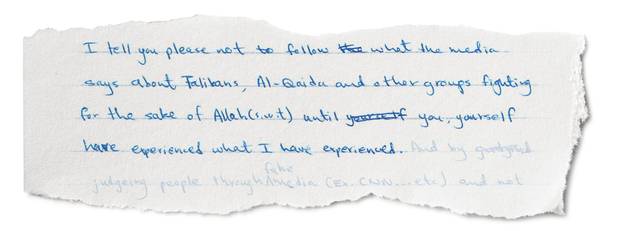 I tell you please not to follow the what the media
says about Talibans, Al-Qaida and other groups fighting
for the sake of Allah(s.w.t) until yourself you, yourself
have experienced what I have experienced. And by
fake
judgeing people through media (Ex. CNN...etc) and not